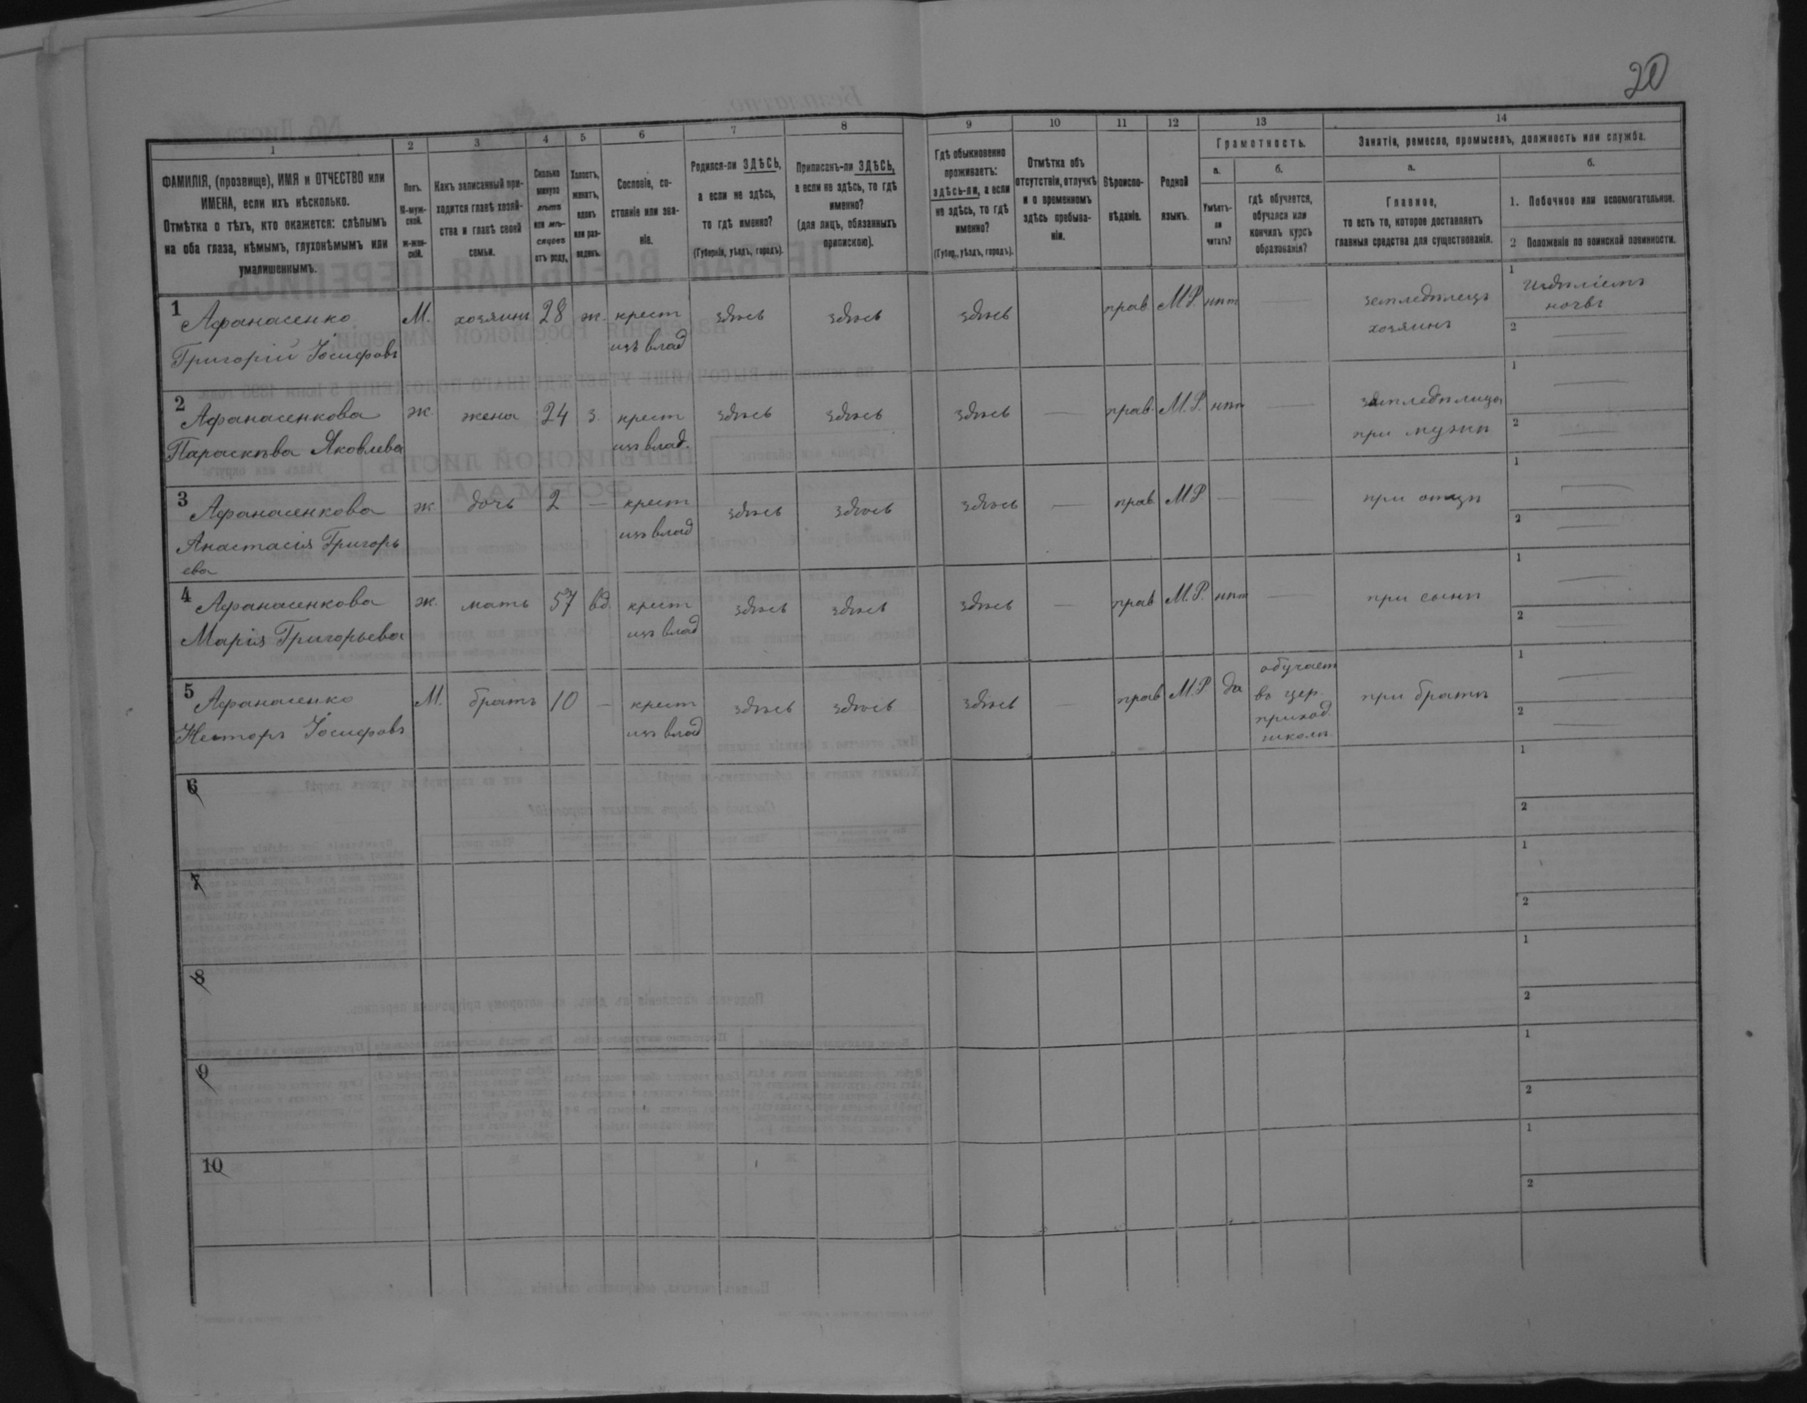 20
1
2
3
4
5
6
7
8
9
10
11
12
13
14
ФАМИЛІЯ, (прозвище), ИМЯ и ОТЧЕСТВО или
ИМЕНА, если ихъ нѣсколько.
Отмѣтка о тѣхъ, кто окажется: слѣпымъ
на оба глаза, нѣмымъ, глухонѣмымъ или
умалишеннымъ.
Полъ.
М-муж-
ской.
ж-жен-
скій.
Какъ записанный при-
ходится главѣ хозяй-
ства и главѣ своей
семьи.
Сколько
минуло
лѣтъ
или мѣ-
сяцевъ
отъ роду.
Холостъ,
женатъ,
вдовъ
или раз-
веденъ.
Сословіе, со-
стояніе или зва-
ніе.
Родился-ли ЗДѢСЬ,
а если не здѣсь,
то гдѣ именно?
(Губернія, уѣздъ, городъ).
Приписанъ-ли ЗДѢСЬ,
а если не здѣсь, то гдѣ
именно?
(для лицъ, обязанныхъ
припискою).
Гдѣ обыкновенно
проживаетъ:
здѣсь-ли, а если
не здѣсь, то гдѣ
именно?
(Губер., уѣздъ, городъ).
Отмѣтка объ
отсутствіи, отлучкѣ
и о временномъ
здѣсь пребыва-
ніи.
Вѣроиспо-
вѣданіе.
Родной
языкъ.
Грамотность.
а.
Умѣетъ-
ли
читать?
б.
гдѣ обучается,
обучался или
кончилъ курсъ
образованія?
Занятіе, ремесло, промыселъ, должность или служба.
а.
Главное,
то есть то, которое доставляетъ
главныя средства для существованія.
б.
1. Побочное или вспомогательное.
2 Положеніе по воинской повинности.
1 Афанасенко М. хозяинъ 28 ж. крест здѣсь здѣсь здѣсь прав М.Р. нѣт — земледѣлецъ 1
Григорій Іосифовъ изъ влад хозяинъ 2 —
2 Афанасенкова ж. жена 24 з. крест здѣсь здѣсь здѣсь — прав. М.Р. нѣт — 1 —
Параскѣва Яковлева изъ влад. при мужѣ 2 —
3 Афанасенкова ж дочь 2 — крест здѣсь здѣсь здѣсь — прав М.Р — — при отцѣ 1 —
Анастасія Григорь изъ влад 2 —
ева
4 Афанасенкова ж. мать 57 вд. крест здѣсь здѣсь здѣсь — прав М.Р. нѣт — при сынѣ 1 —
Марія Григорьева изъ влад 2 —
5 Афанасенко М. братъ 10 — крест здѣсь здѣсь здѣсь — прав М.Р да обучает при братѣ 1 —
Несторъ Іосифовъ изъ влад въ цер. 2 —
приход.
школѣ
6 1
2
7 1
2
8 1
2
9 1
2
10 1
2